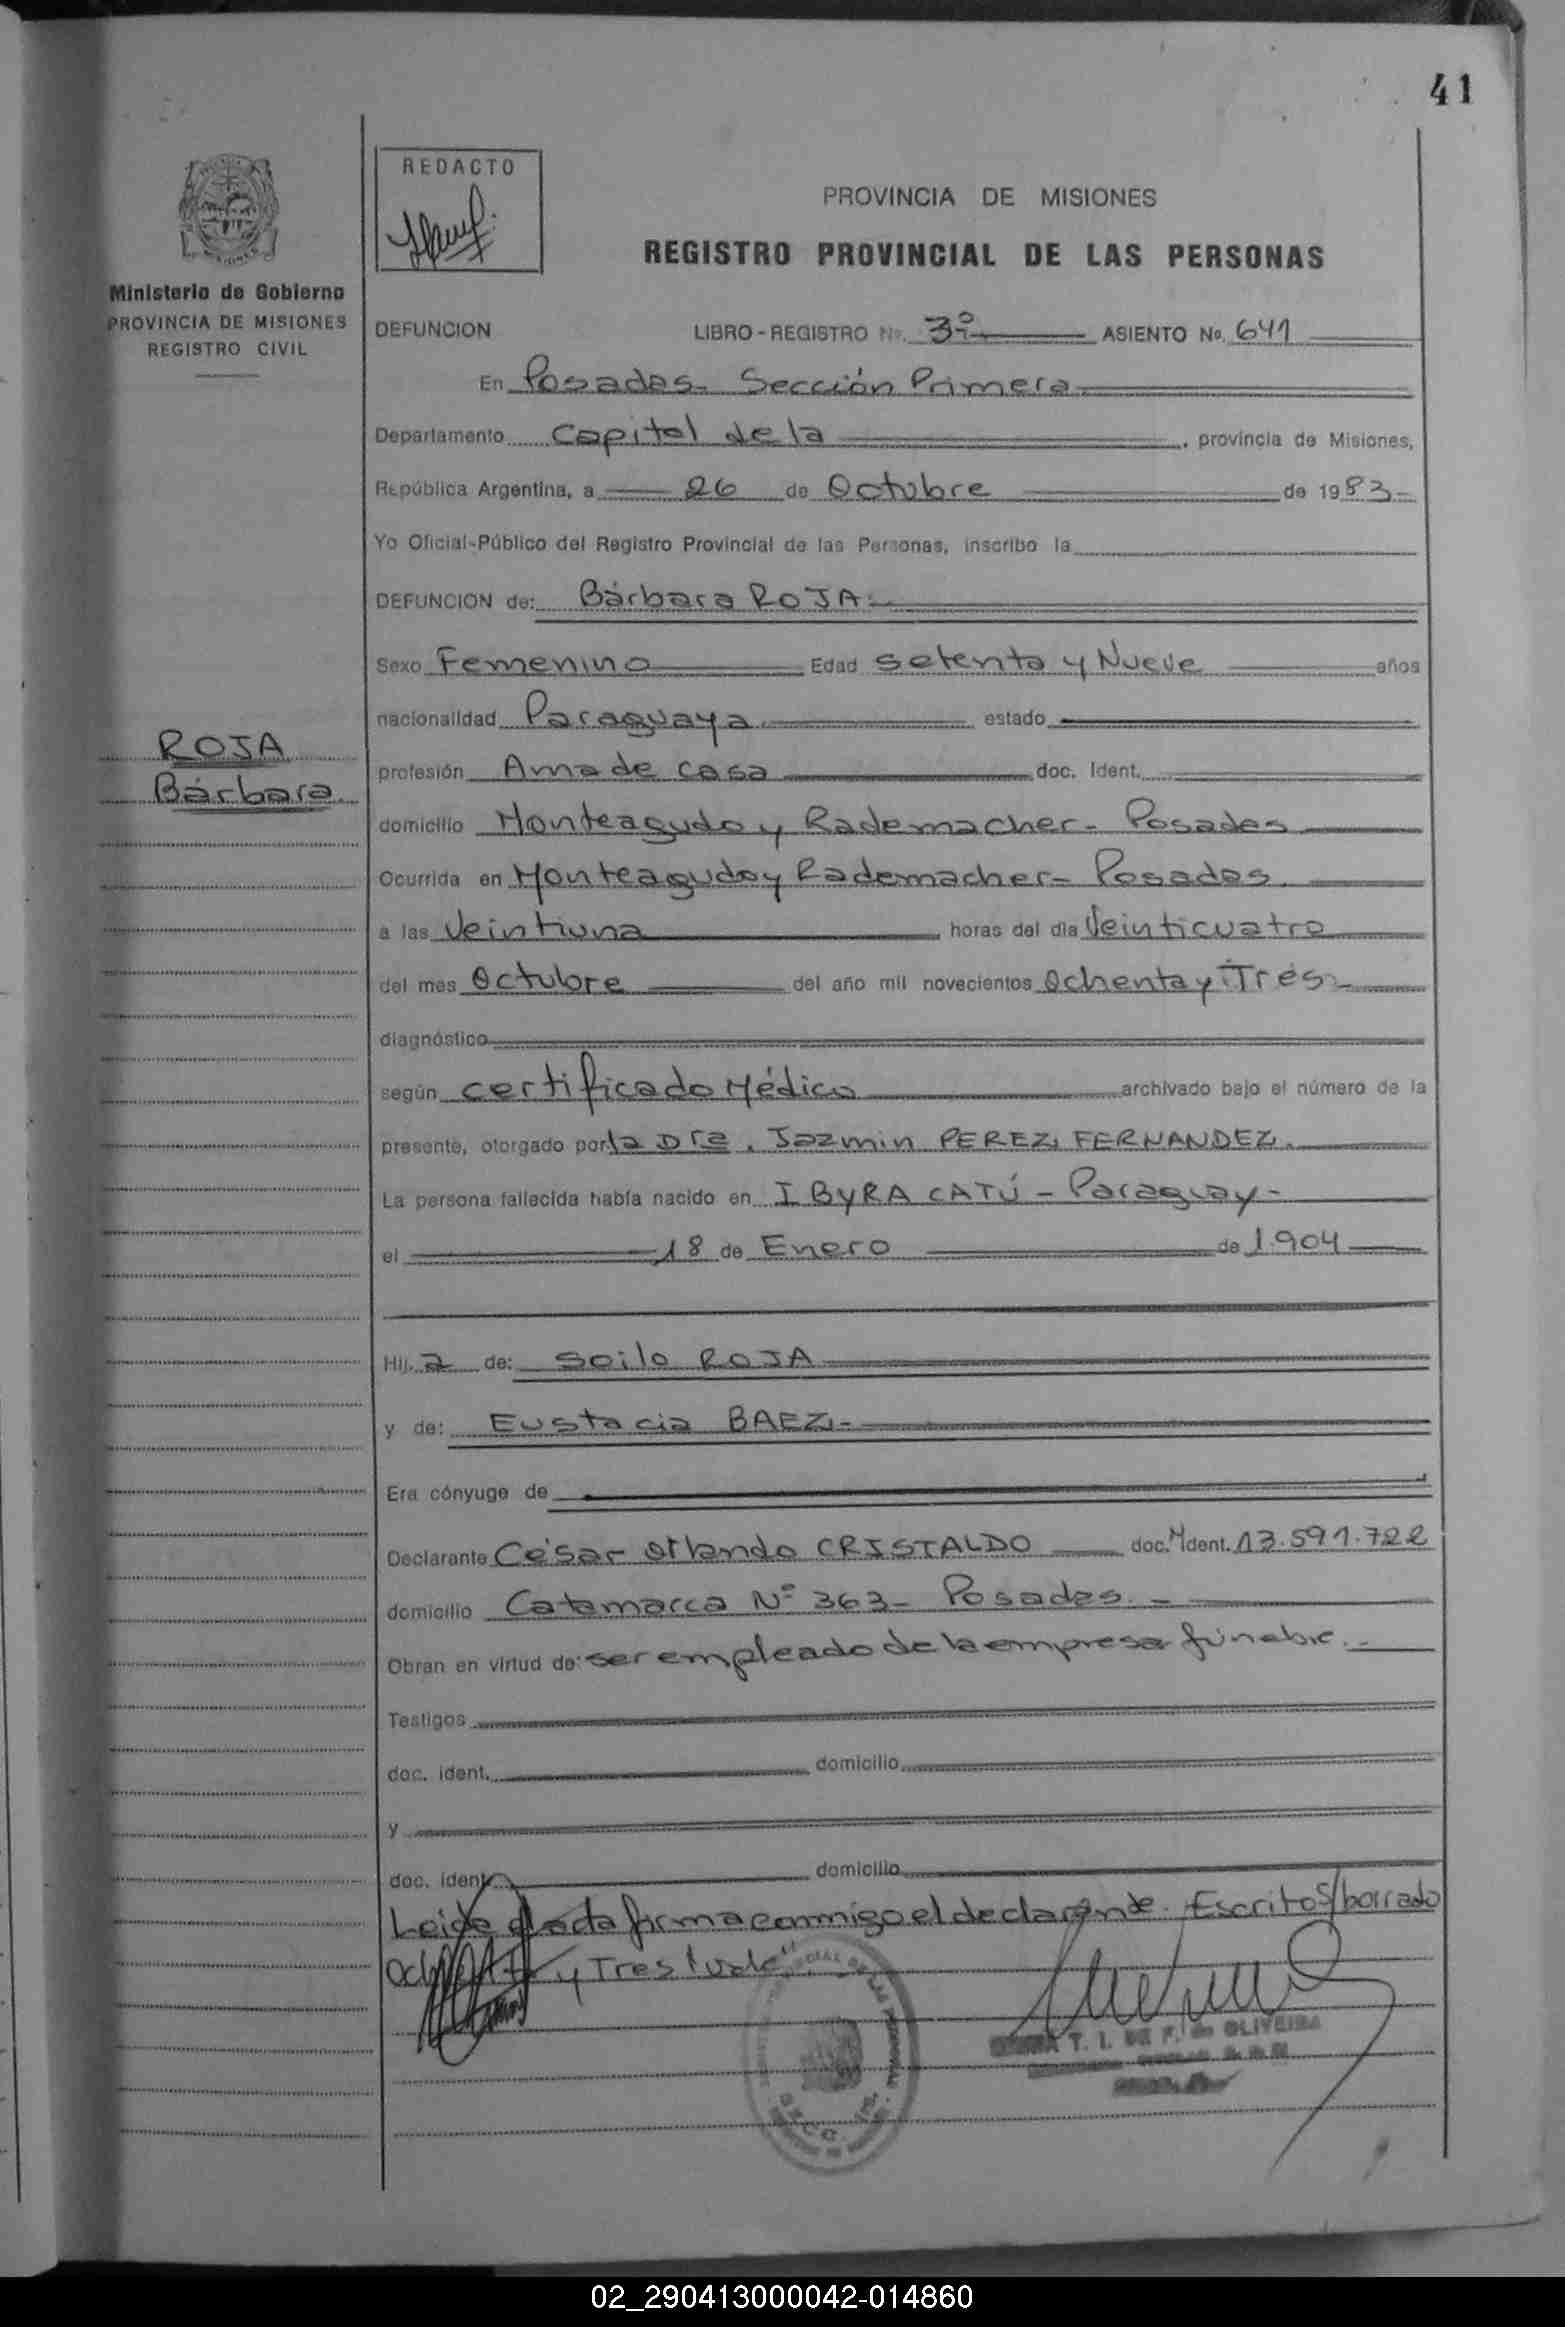 41
REDACTO
PROVINCIA DE MISIONES
REGISTRO PROVINCIAL DE LAS PERSONAS
Ministerio de Gobierno
PROVINCIA DE MISIONES
REGISTRO CIVIL
DEFUNCION LIBRO-REGISTRO No. 3º ASIENTO No. 641
En Posadas- Sección Primera
Departamento Capital de la , provincia de Misiones,
República Argentina, a 26 de Octubre de 1983-
Yo Oficial-Público del Registro Provincial de las Personas, inscribo la
DEFUNCION de: Bárbara ROJA.-
Sexo Femenino Edad setenta y Nueve años
nacionalidad Paraguaya estado
ROJA
Bárbara
profesión Ama de casa doc. Ident.
domicilio Monteagudo y Rademacher- Posadas
Ocurrida en Monteagudo y Rademacher- Posadas
a las Veintiuna , horas del día Veinticuatro
del mes Octubre del año mil novecientos Ochenta y Tres.-
diagnóstico
según certificado Médico archivado bajo el número de la
presente, otorgado por la Dra. Jazmin PEREZ FERNANDEZ.
La persona fallecida había nacido en IBYRA CATÚ - Paraguay-
el 18 de Enero de 1.904
Hij a de: Soilo ROJA
y de: Eustacia BAEZ.-
Era cónyuge de
Declarante César Orlando CRISTALDO doc. M Ident. 13.591.722
domicilio Catamarca Nº 363- Posadas.-
Obran en virtud de: ser empleado de la empresa fúnebre.-
Testigos
doc. ident. domicilio
y
doc. ident. domicilio
Leida el acta firma conmigo el declarante. Escrito s/borrado
Ochenta y Tres "vale"
T. I. DE F. de OLIVEIRA
02_290413000042-014860